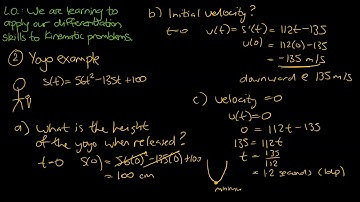 L.O: We are learning to
apply our differentiation
skills to kinematic problems.
② Yoyo example
s(t) = 56t² - 135t + 100
a) What is the height
of the yoyo when released?
t=0 s(0) = 56(0)² - 135(0) + 100
= 100 cm
b) Initial velocity?
t=0 v(t) = s'(t) = 112t - 135
v(0) = 112(0) - 135
= -135 m/s
downward @ 135 m/s
c) velocity = 0
v(t) = 0
0 = 112t - 135
135 = 112t
t = 135/112
= 1.2 seconds (1dp)
minimum